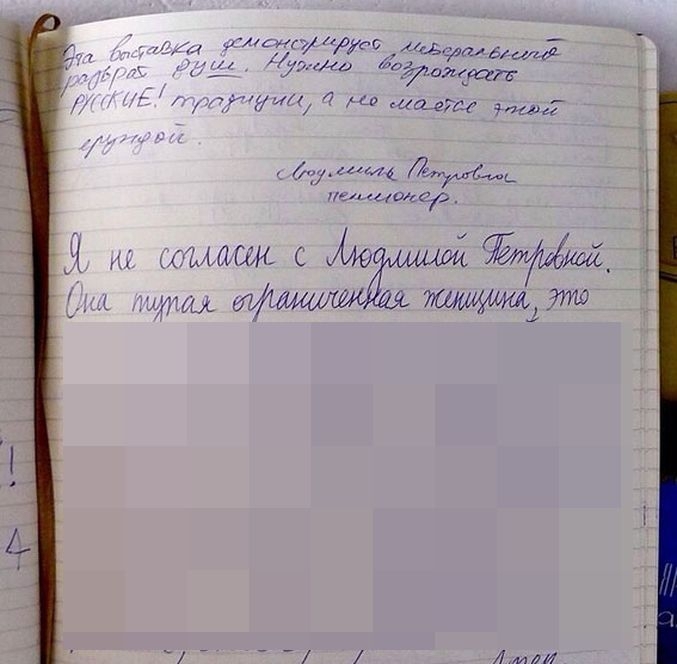 Эта выставка демонстрирует либерального
разврат душ. Нужно возрождать
РУССКИЕ! традиции, а не маятся этой
ерундой.
Людмила Петровна
пенсионер.
Я не согласен с Людмилой Петровной.
Она тупая ограниченная женщина, это
!
4